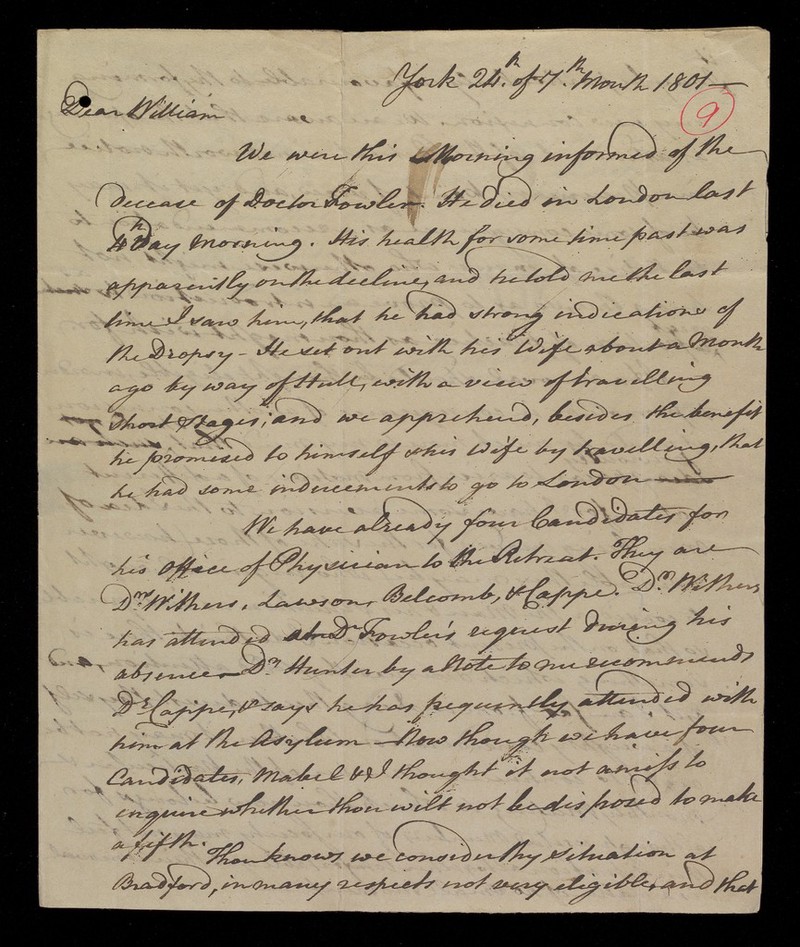 York 24th. of 7th. Month 1801—
9
Dear William
We were this Morning informed of the
decease of Doctor Fowler. He died in London last
4th Day Morning. His health for some time past was
apparently on the decline, and he told me the last
time I saw him, that he had strong indications of
the Dropsy - He set out with his Wife about a Month
ago by way of Hull, with a view of travelling
Short Stages; and we apprehend, besides the benefit
he promised to himself & his Wife by travelling, that
he had some inducements to go to London
We have already four Candidates for
his Office of Physician to the Retreat. They are
Drs. Withers, Lawson, Belcomb, & Cappe. Dr. Withers
has attended at Dr. Fowler's request during his
absence — Dr. Hunter by a Note to me recommends
Dr. Cappe, & says he has frequently attended with
him at the Asylum — Now though we have four
Candidates, Mabel & I thought it not amiss to
inquire whether thou wilt not be disposed to make
a fifth.
Thou knows we consider thy situation at
Bradford, in many respects not very eligible, and that